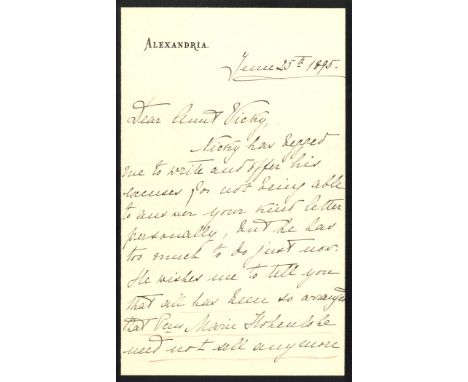 ALEXANDRIA.
June 25th 1895.
Dear Aunt Vicky,
Nicky has begged
me to write and offer his
excuses for not being able
to answer your kind letter
personally, but he has
too much to do just now.
He wishes me to tell you
that all has been so arranged
that Pcess Marie Hohenlohe
need not sell anymore